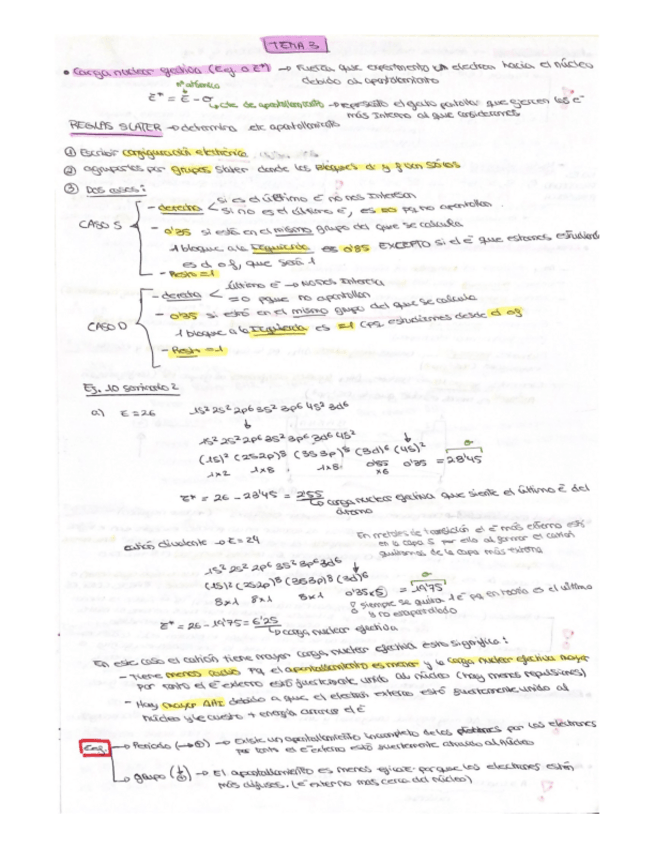 TEMA 3
• Carga nuclear efectiva (Zef o Z*) → Fuerza que experimenta un electrón hacia el núcleo
debido al apantallamiento
nº atómico
Z* = Z - σ
↳ cte de apantallamiento → representa el efecto pantalla que ejercen los e⁻
más internos al que consideramos
REGLAS SLATER → determina cte apantallamiento
① Escribir configuración electrónica
② agruparlos por grupos Slater donde los bloques d y f van solos
③ Dos casos:
CASO S
- derecha < si es el último e⁻ no nos interesan
si no es el último e⁻, es =0 pq no apantallan
- 0'35 si está en el mismo grupo del que se calcula
1 bloque a la izquierda es 0'85 EXCEPTO si el e⁻ que estamos estudiando
es d o f, que será 1
- Resto = 1
CASO D
último e⁻ → no nos interesa
- derecha < =0 porque no apantallan
- 0'35 si está en el mismo grupo del que se calcula
1 bloque a la izquierda es =1 (pq estudiamos desde d o f
- Resto = 1
Ej. 10 seminario 2
a) Z = 26 1s² 2s² 2p⁶ 3s² 3p⁶ 4s² 3d⁶
↓
1s² 2s² 2p⁶ 3s² 3p⁶ 3d⁶ 4s²
(1s)² (2s2p)⁸ (3s3p)⁸ (3d)⁶ (4s)² σ
1x2 1x8 1x8 0'85 x6 0'35 = 28'45
Z* = 26 - 28'45 = 2'55
↳ carga nuclear efectiva que siente el último e⁻ del
átomo
catión divalente → Z = 24
En metales de transición el e⁻ más externo está
en la capa S por ello al formar el catión
quitamos de la capa más externa
1s² 2s² 2p⁶ 3s² 3p⁶ 3d⁶
(1s)² (2s2p)⁸ (3s3p)⁸ (3d)⁶ σ
8x1 8x1 8x1 0'35 (5) = 19'75
siempre se quita 1 e⁻ pq en teoría es el último
y no es apantallado
Z* = 26 - 19'75 = 6'25
↳ carga nuclear efectiva
En este caso el catión tiene mayor carga nuclear efectiva esto significa:
- Tiene menos radio pq el apantallamiento es menor y la carga nuclear efectiva mayor
por tanto el e⁻ externo está fuertemente unido al núcleo (hay menos repulsiones)
- Hay mayor AHI debido a que el electrón externo está fuertemente unido al
núcleo y le cuesta + energía arrancar el e⁻
Zef. → Periodo (→⊕) → Existe un apantallamiento incompleto de los protones por los electrones
por tanto el e⁻ externo está fuertemente atraido al núcleo
↳ grupo (↓⊕) → El apantallamiento es menos eficaz porque los electrones están
más difusos. (e⁻ externo mas cerca del núcleo)